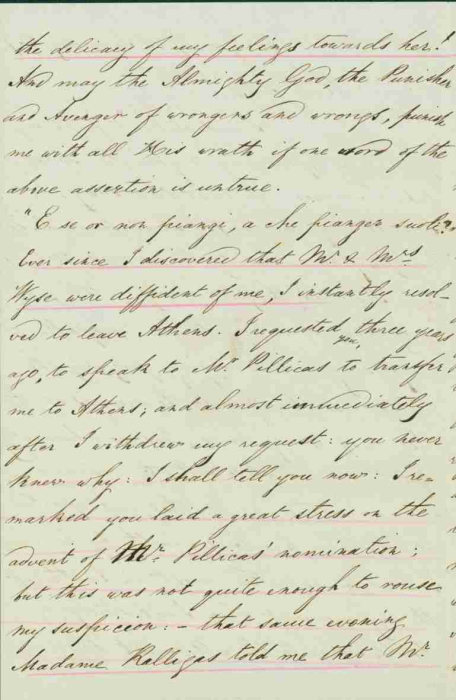 the delicacy of my feelings towards her!
And may the Almighty God, the Punisher
and Avenger of wrongers and wrongs, punish
me with all His wrath if one word of the
above assertion is untrue.
"E se or non piangi, a che pianger suoli?"
Ever since I discovered that Mr. & Mrs
Wyse were diffident of me, I instantly resol-
ved to leave Athens. I requested you, three years
ago, to speak to Mr. Pillicas to transfer
me to Athens; and almost immediately
after I withdrew my request: you never
knew why: I shall tell you now: I re=
marked you laid a great stress on the
advent of Mr. Pillicas' nomination;
but this was not quite enough to rouse
my suspicion: - that same evening
Madame Ralligas told me that Mr.